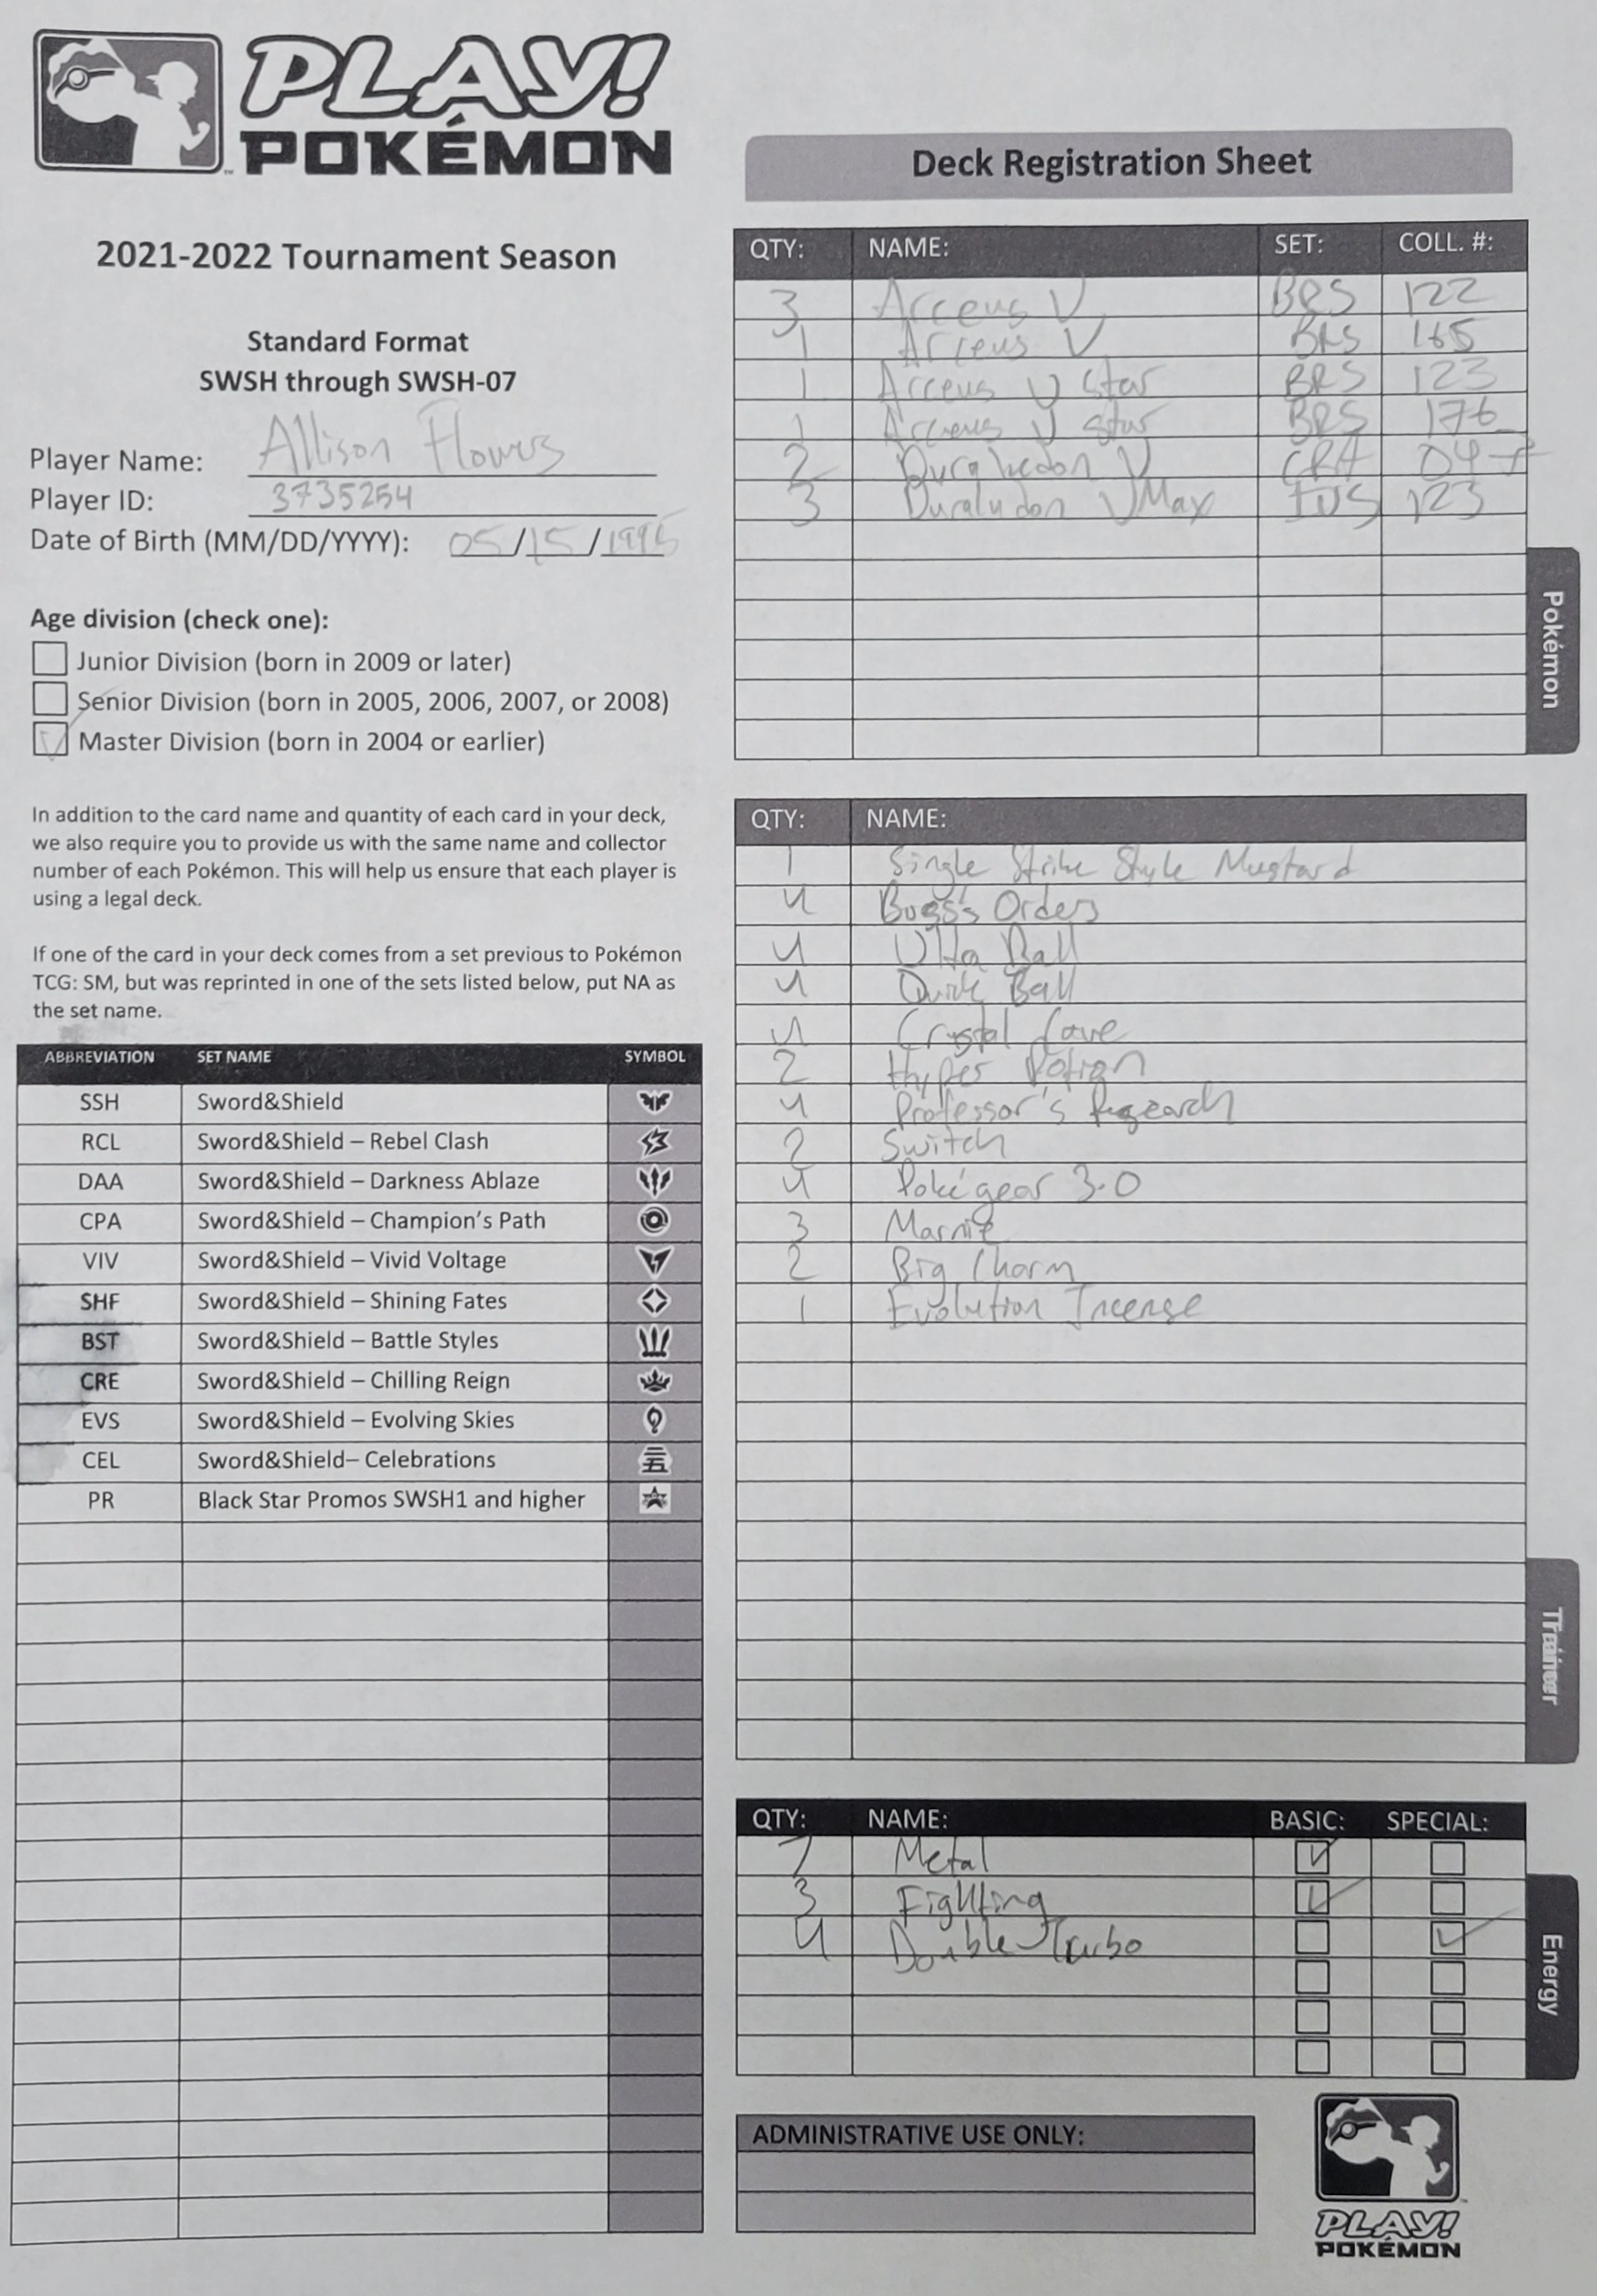 PLAY!
POKÉMON
2021-2022 Tournament Season
Standard Format
SWSH through SWSH-07
Player Name: Allison Flowers
Player ID: 3735254
Date of Birth (MM/DD/YYYY): 05/15/1995
Age division (check one):
Junior Division (born in 2009 or later)
Senior Division (born in 2005, 2006, 2007, or 2008)
Master Division (born in 2004 or earlier)
In addition to the card name and quantity of each card in your deck,
we also require you to provide us with the same name and collector
number of each Pokémon. This will help us ensure that each player is
using a legal deck.
If one of the card in your deck comes from a set previous to Pokémon
TCG: SM, but was reprinted in one of the sets listed below, put NA as
the set name.
ABBREVIATION SET NAME SYMBOL
SSH Sword&Shield
RCL Sword&Shield – Rebel Clash
DAA Sword&Shield – Darkness Ablaze
CPA Sword&Shield – Champion's Path
VIV Sword&Shield – Vivid Voltage
SHF Sword&Shield – Shining Fates
BST Sword&Shield – Battle Styles
CRE Sword&Shield – Chilling Reign
EVS Sword&Shield – Evolving Skies
CEL Sword&Shield– Celebrations
PR Black Star Promos SWSH1 and higher
Deck Registration Sheet
QTY: NAME: SET: COLL. #:
3 Arceus V BRS 122
1 Arceus V BRS 165
1 Arceus V star BRS 123
1 Arceus V star BRS 176
2 Duraludon V 047
3 Duraludon VMax 123
Pokémon
QTY: NAME:
1 Single Strike Style Mustard
4 Boss's Orders
4 Ultra Ball
4 Quick Ball
4 Crystal Cave
2 Hyper Potion
4 Professor's Research
2 Switch
4 Pokégear 3.0
3 Marnie
2 Big Charm
1 Evolution Incense
Trainer
QTY: NAME: BASIC: SPECIAL:
7 Metal
3 Fighting
4 Double Turbo
Energy
ADMINISTRATIVE USE ONLY:
PLAY!
POKÉMON